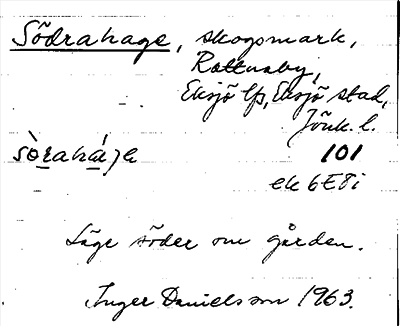 Södrahage, skogsmark,
Rattnaby,
Eksjö lfs, Eksjö stad,
Jönk. l.
sò̱rahá̱ge 101
ek 6E8i
Läge söder om gården.
Inger Danielsson 1963.